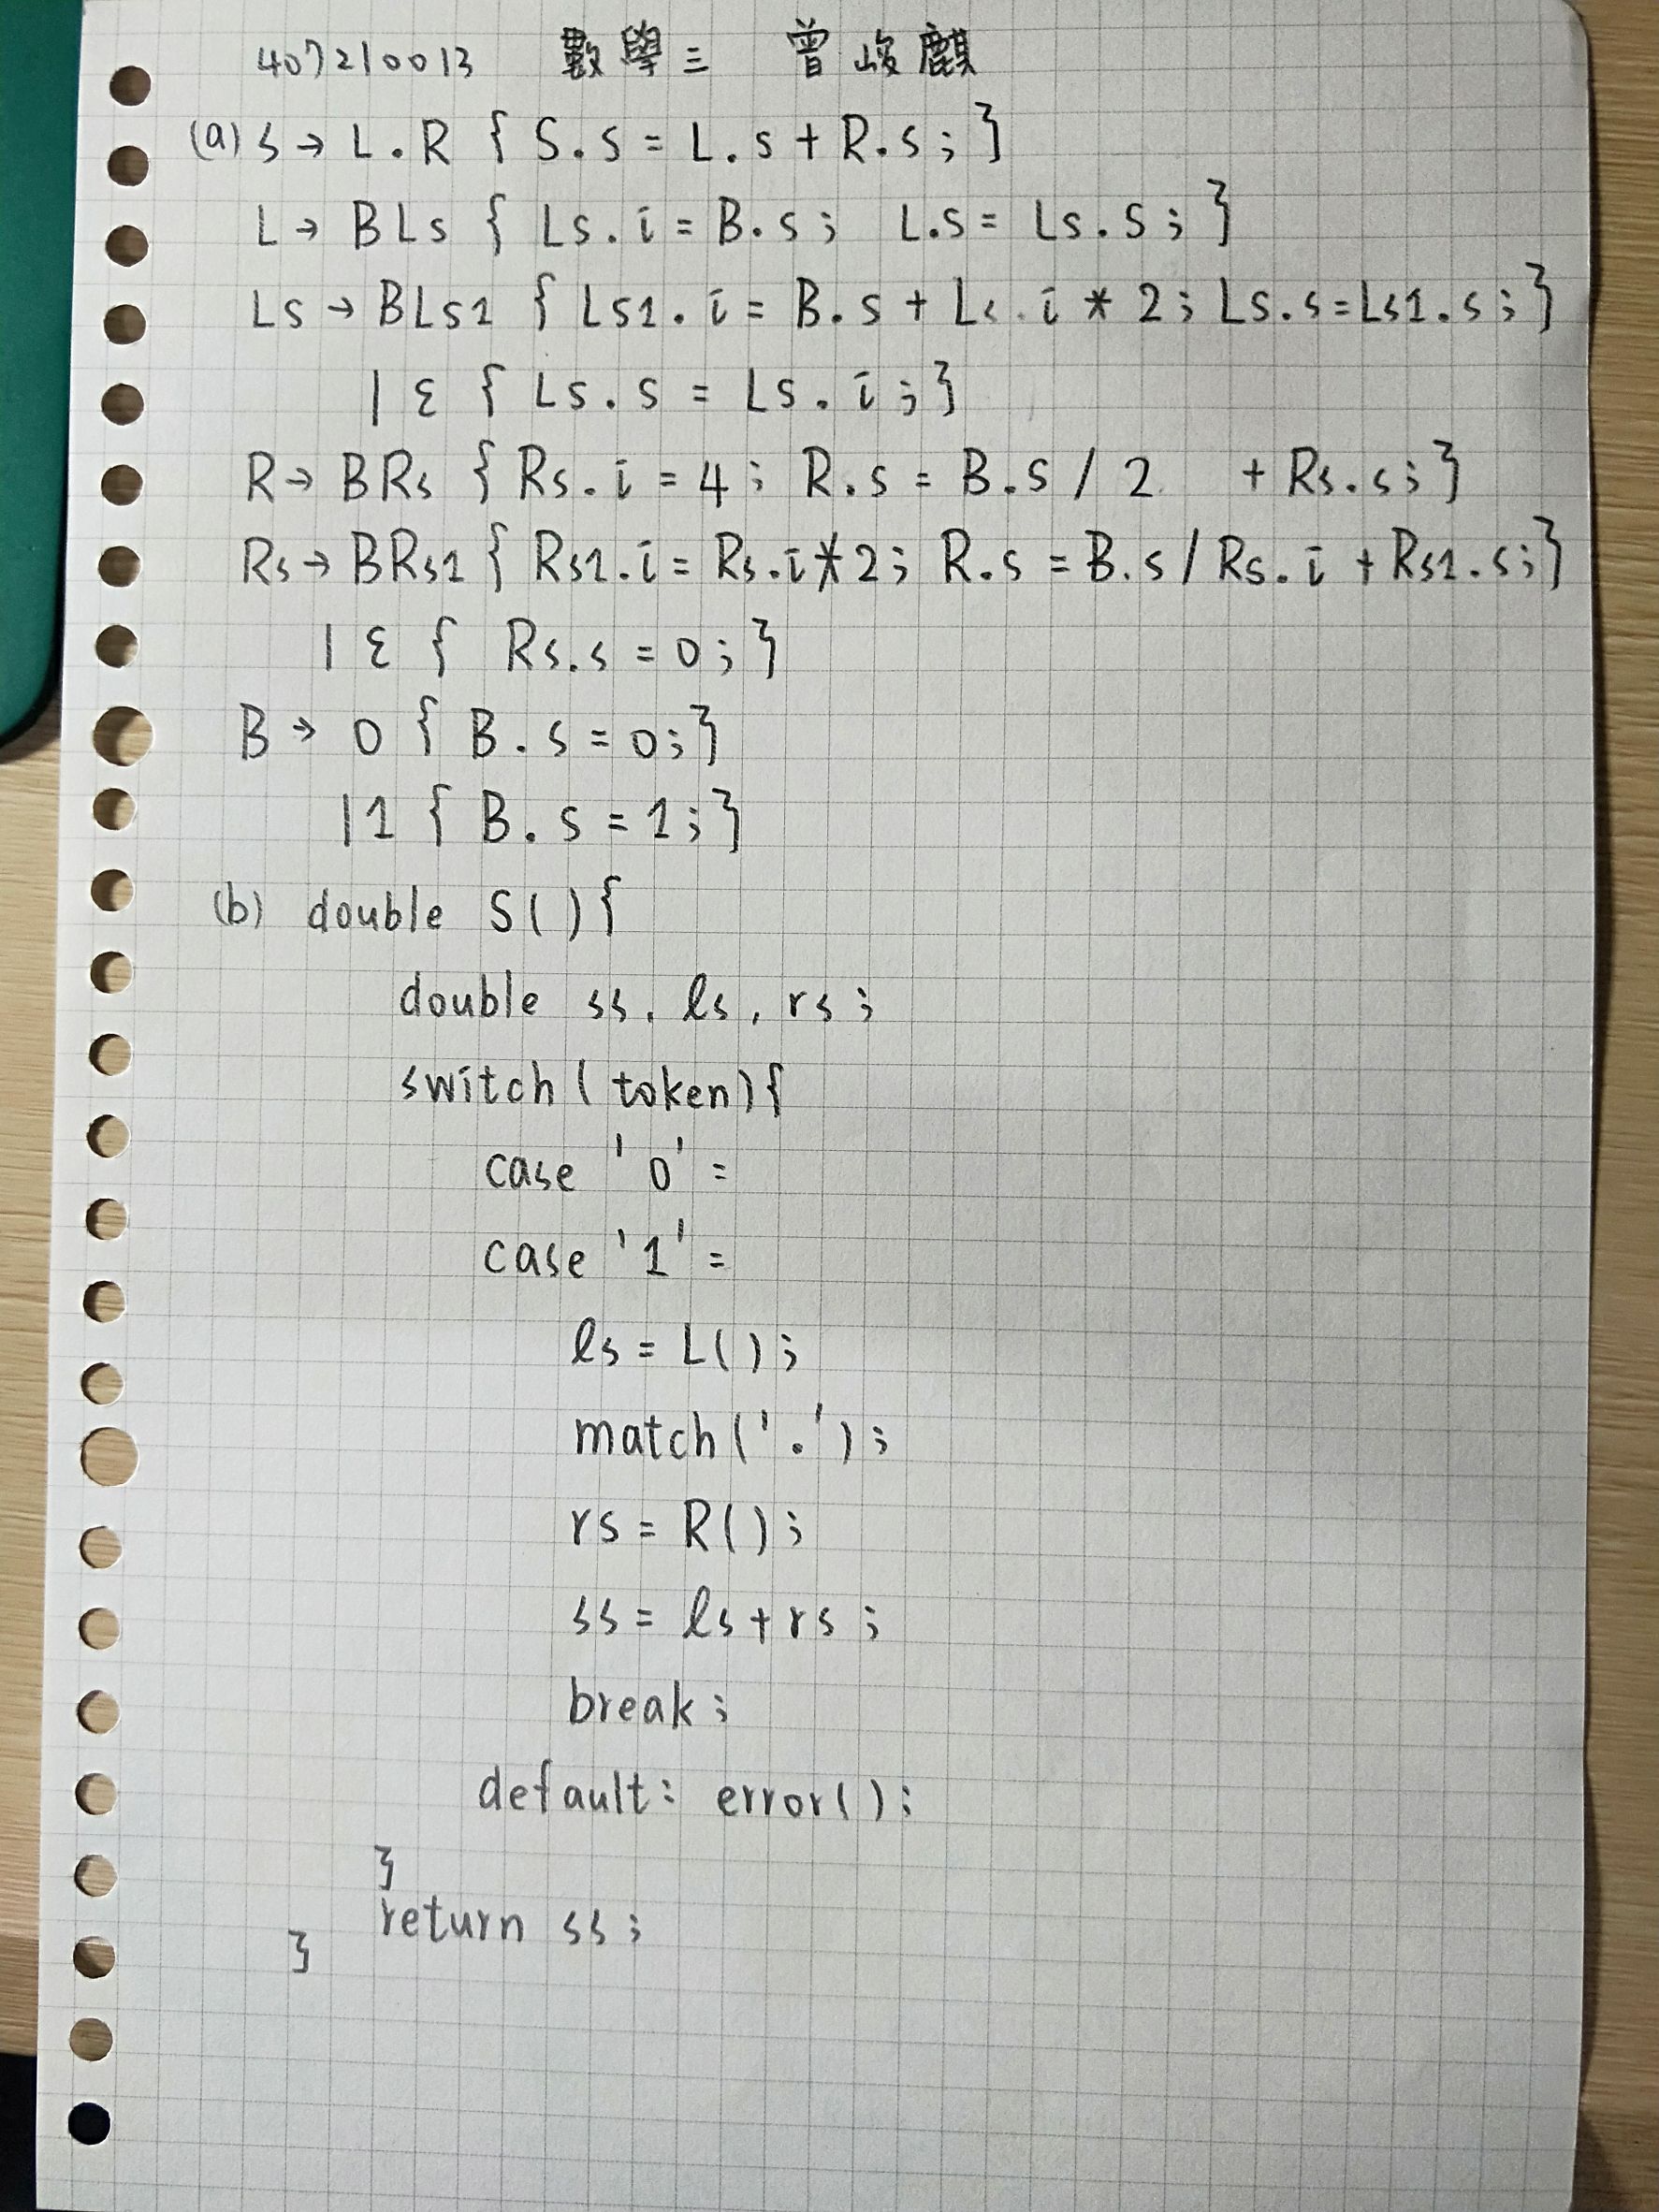 407210013 數學三 曾峻麒
(a) S → L . R { S.s = L.s + R.s ; }
L → BLs { Ls.i = B.s ; L.s = Ls.s ; }
Ls → BLs1 { Ls1.i = B.s + Ls.i * 2 ; Ls.s = Ls1.s ; }
| ε { Ls.s = Ls.i ; }
R → BRs { Rs.i = 4 ; R.s = B.s / 2 + Rs.s ; }
Rs → BRs1 { Rs1.i = Rs.i * 2 ; R.s = B.s / Rs.i + Rs1.s ; }
| ε { Rs.s = 0 ; }
B → 0 { B.s = 0 ; }
| 1 { B.s = 1 ; }
(b) double S ( ) {
double ss, ls, rs ;
switch ( token ) {
case '0' :
case '1' :
ls = L ( ) ;
match ( '.' ) ;
rs = R ( ) ;
ss = ls + rs ;
break ;
default : error ( ) ;
}
return ss ;
}